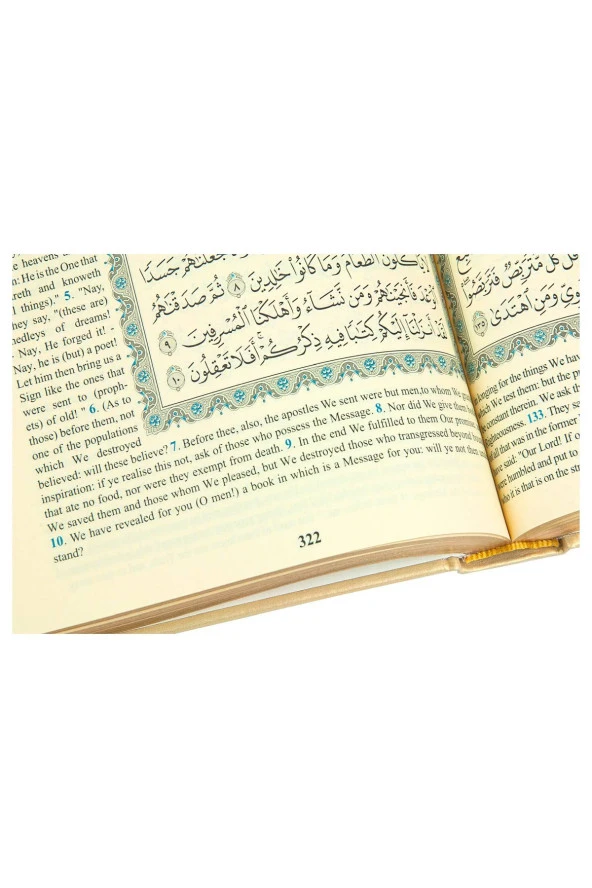 جَعَلْنَٰهُمْ جَسَدًا
الطَّعَامَ وَمَا كَانُوا۟ خَٰلِدِينَ ٨ ثُمَّ صَدَقْنَٰهُمُ
فَأَنجَيْنَٰهُمْ وَمَن نَّشَآءُ وَأَهْلَكْنَا ٱلْمُسْرِفِينَ ٩
لَقَدْ أَنزَلْنَآ إِلَيْكُمْ كِتَٰبًا فِيهِ ذِكْرُكُمْ أَفَلَا تَعْقِلُونَ ١٠
heavens
: He is the One that
areth and knoweth
l things)." 5. "Nay,
hey say, "(these are)
nedleys of dreams!
- Nay, He forged it! -
Nay, he is (but) a poet!
Let him then bring us a
Sign like the ones that
were sent to (proph-
ets) of old! " 6. (As to
those) before them, not
one of the populations
which We destroyed
believed: will these believe? 7. Before thee, also, the apostles We sent were but men,to whom We
inspiration: if ye realise this not, ask of those who possess the Message. 8. Nor did We give them
that ate no food, nor were they exempt from death. 9. In the end We fulfilled to them Our promise
We saved them and those whom We pleased, but We destroyed those who transgressed beyond
10. We have revealed for you (O men!) a book in which is a Message for you: will ye not then
stand?
322
كُلٌّ مُّتَرَبِّصٌ فَتَرَبَّصُوا۟
وَمَنِ ٱهْتَدَىٰ ١٣٥
longing for the things We have
which We test them: but the
constant therein. We ask th
righteousness. 133. They s
all that was in the former
have said: "Our Lord! If o
were humbled and put to
who it is that is on the str